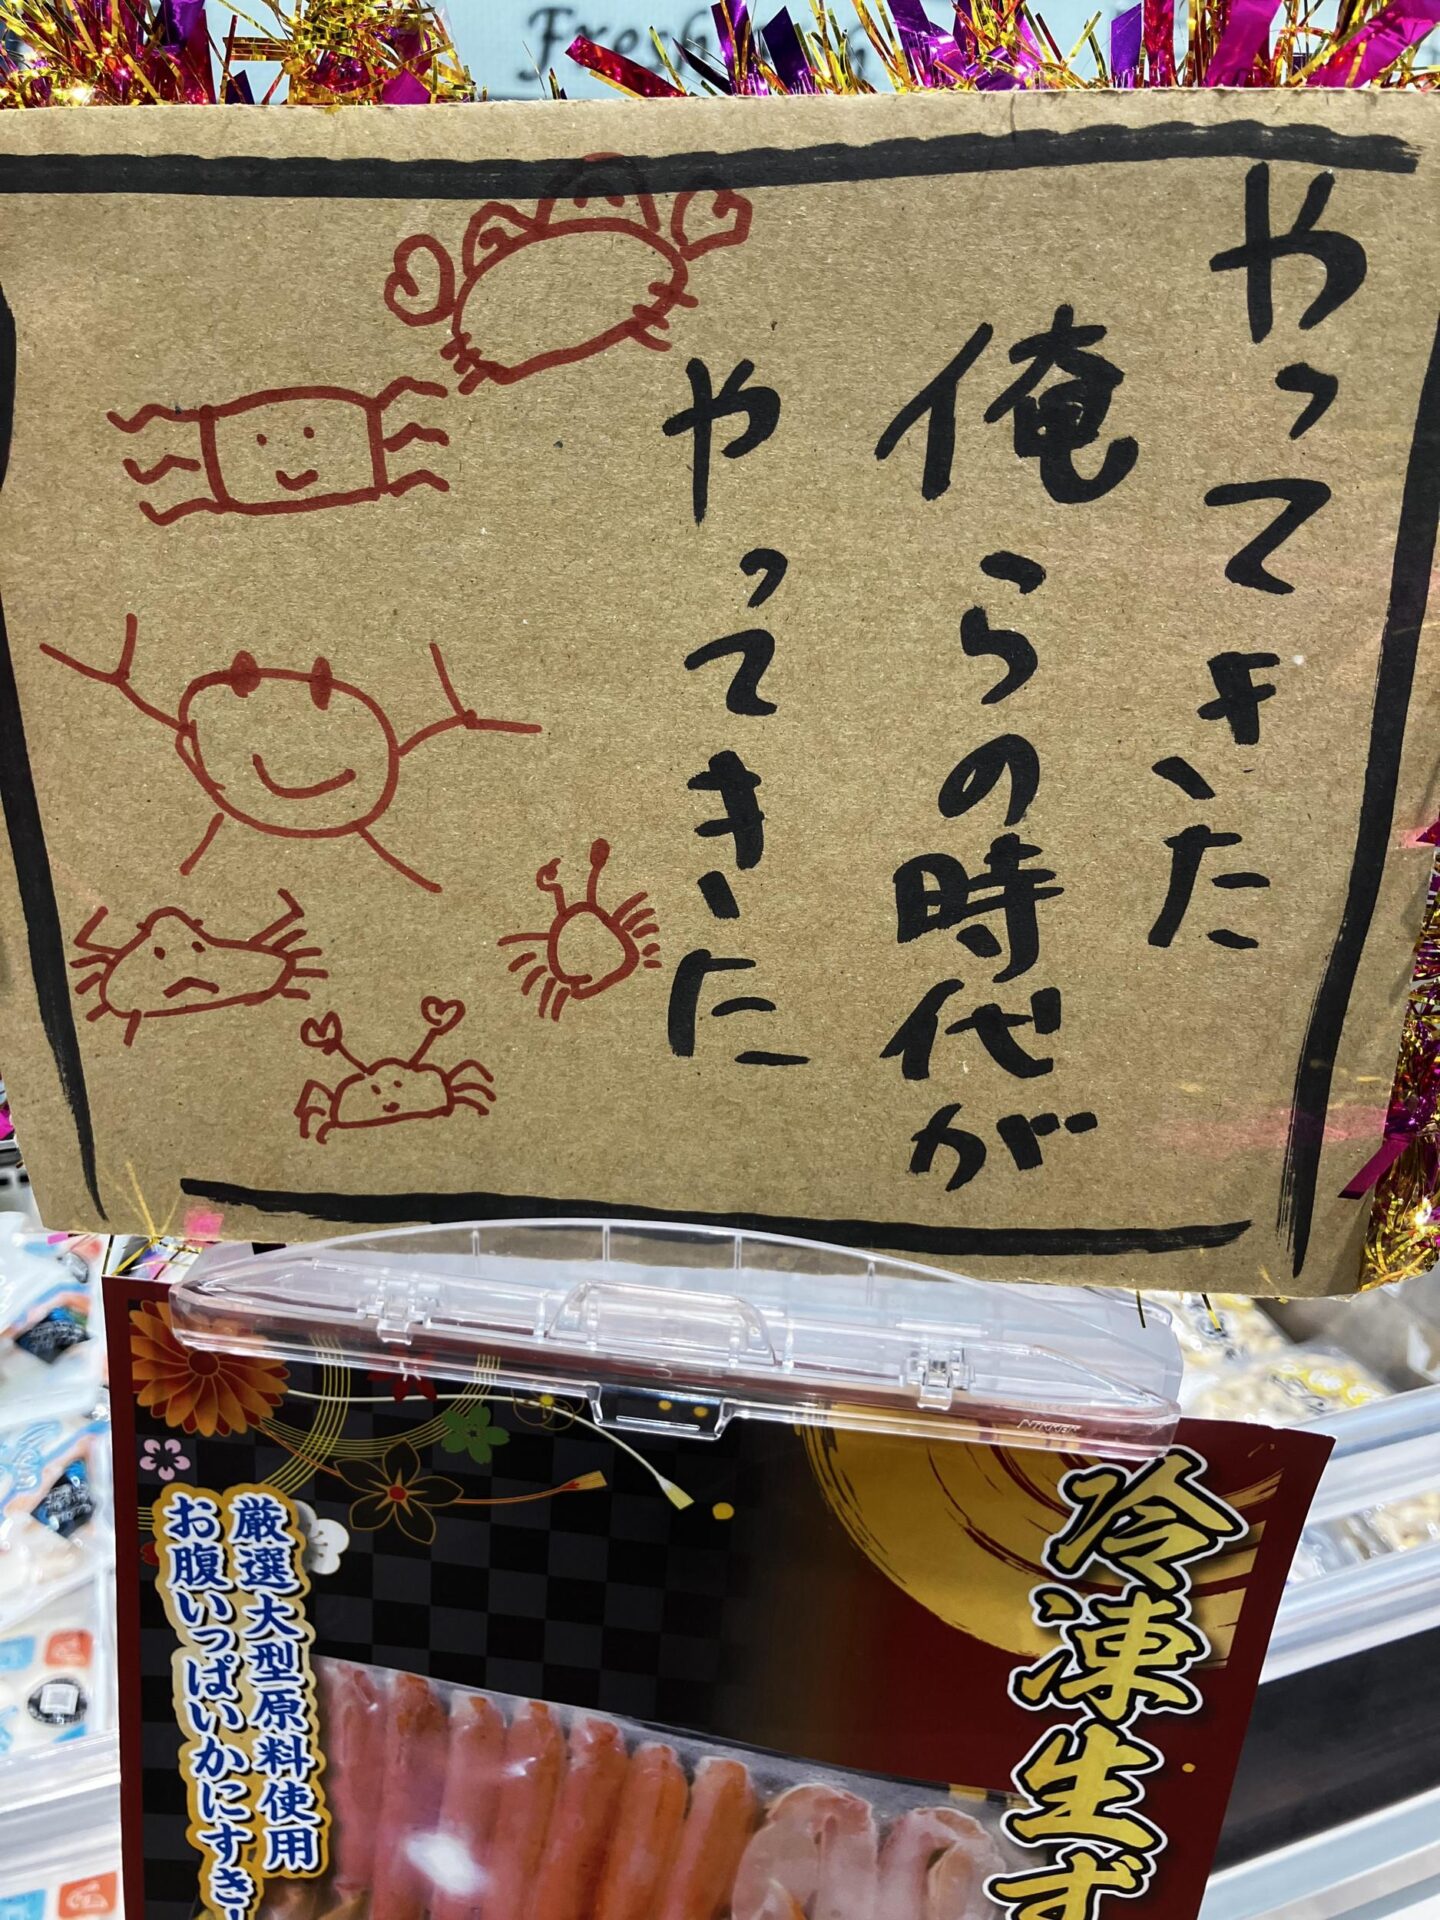 Fresh
やってきた
俺らの時代が
やってきた
NIKKEN
冷凍生ず
厳選大型原料使用
お腹いっぱいかにすき!